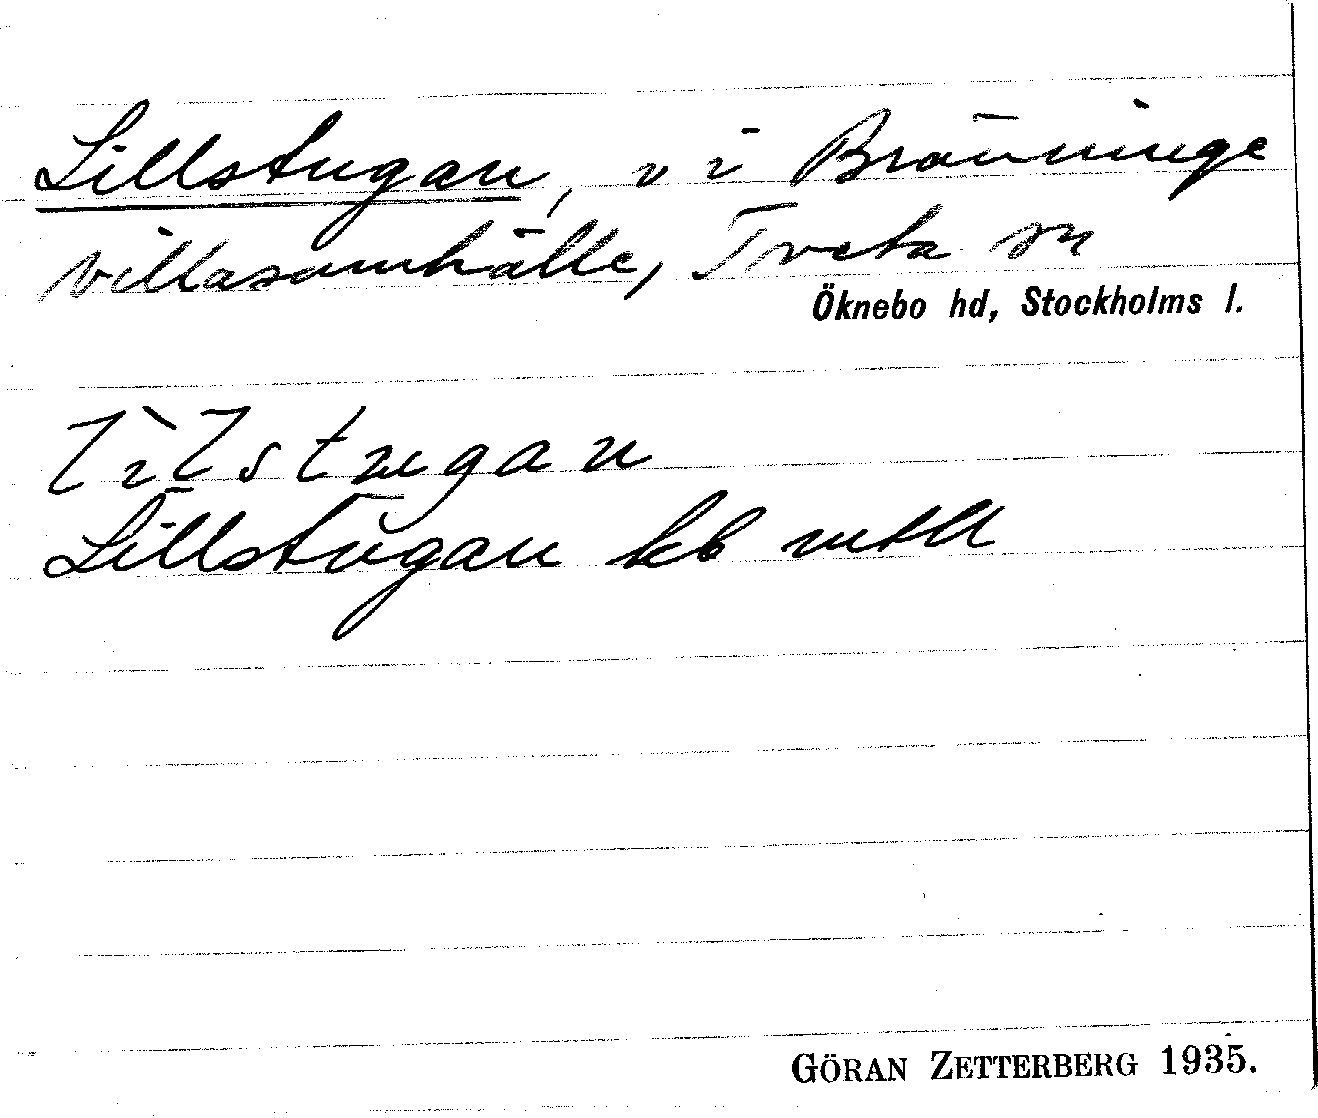 Lillstugan, v i Bränninge
villasamhälle, Tveta sn
Öknebo hd, Stockholms l.
lìlstugan
Lillstugan kb mtll
GÖRAN ZETTERBERG 1935.